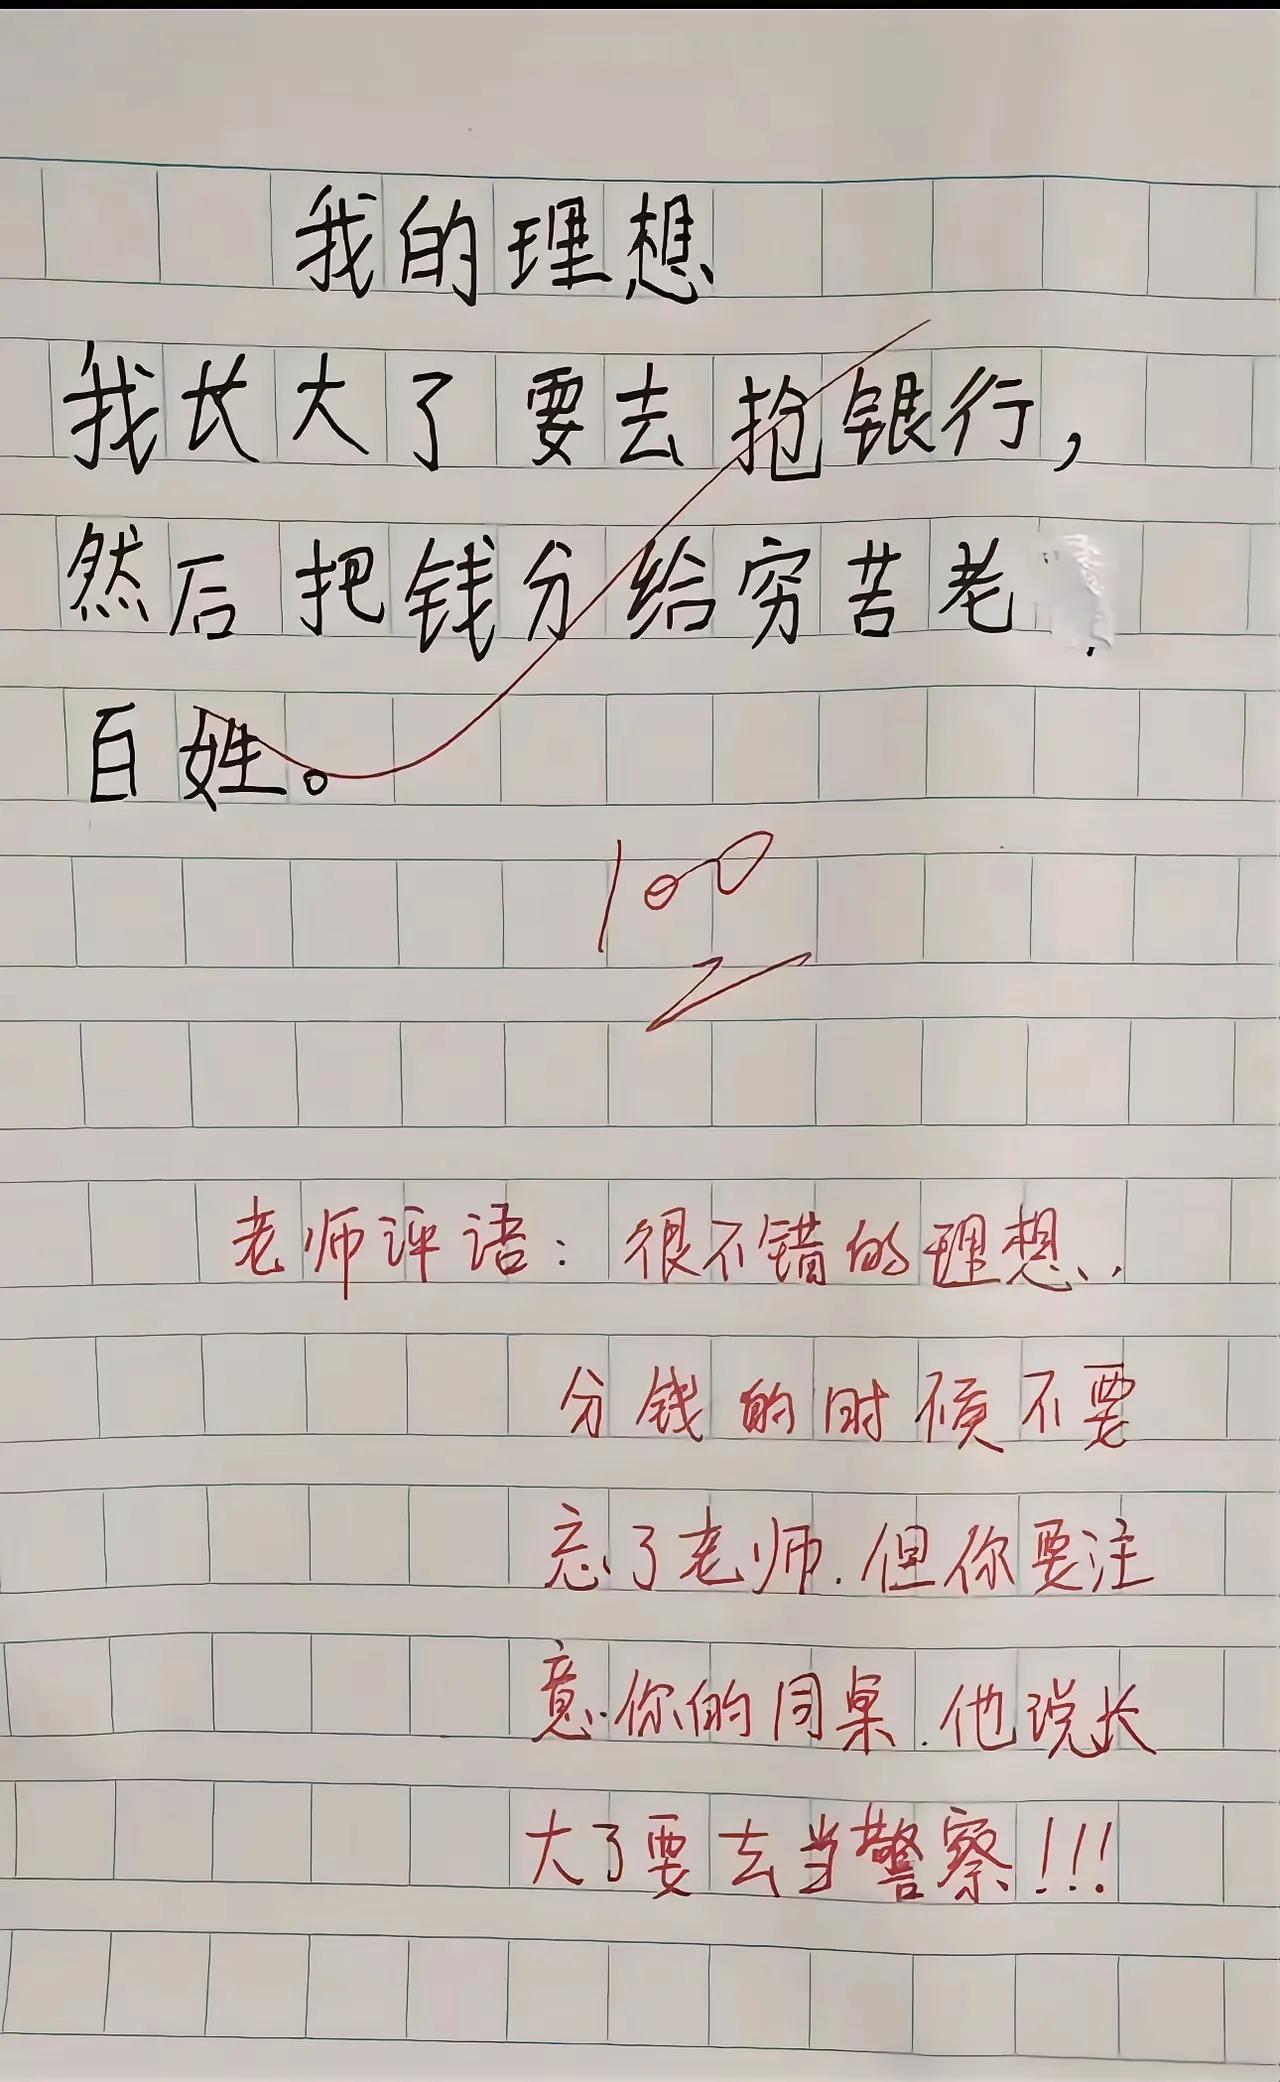 我的理想
我长大了要去抢银行,
然后把钱分给穷苦老
百姓。
100
老师评语：很不错的理想..
分钱的时候不要
忘了老师.但你要注
意.你的同桌.他说长
大了要去当警察!!!